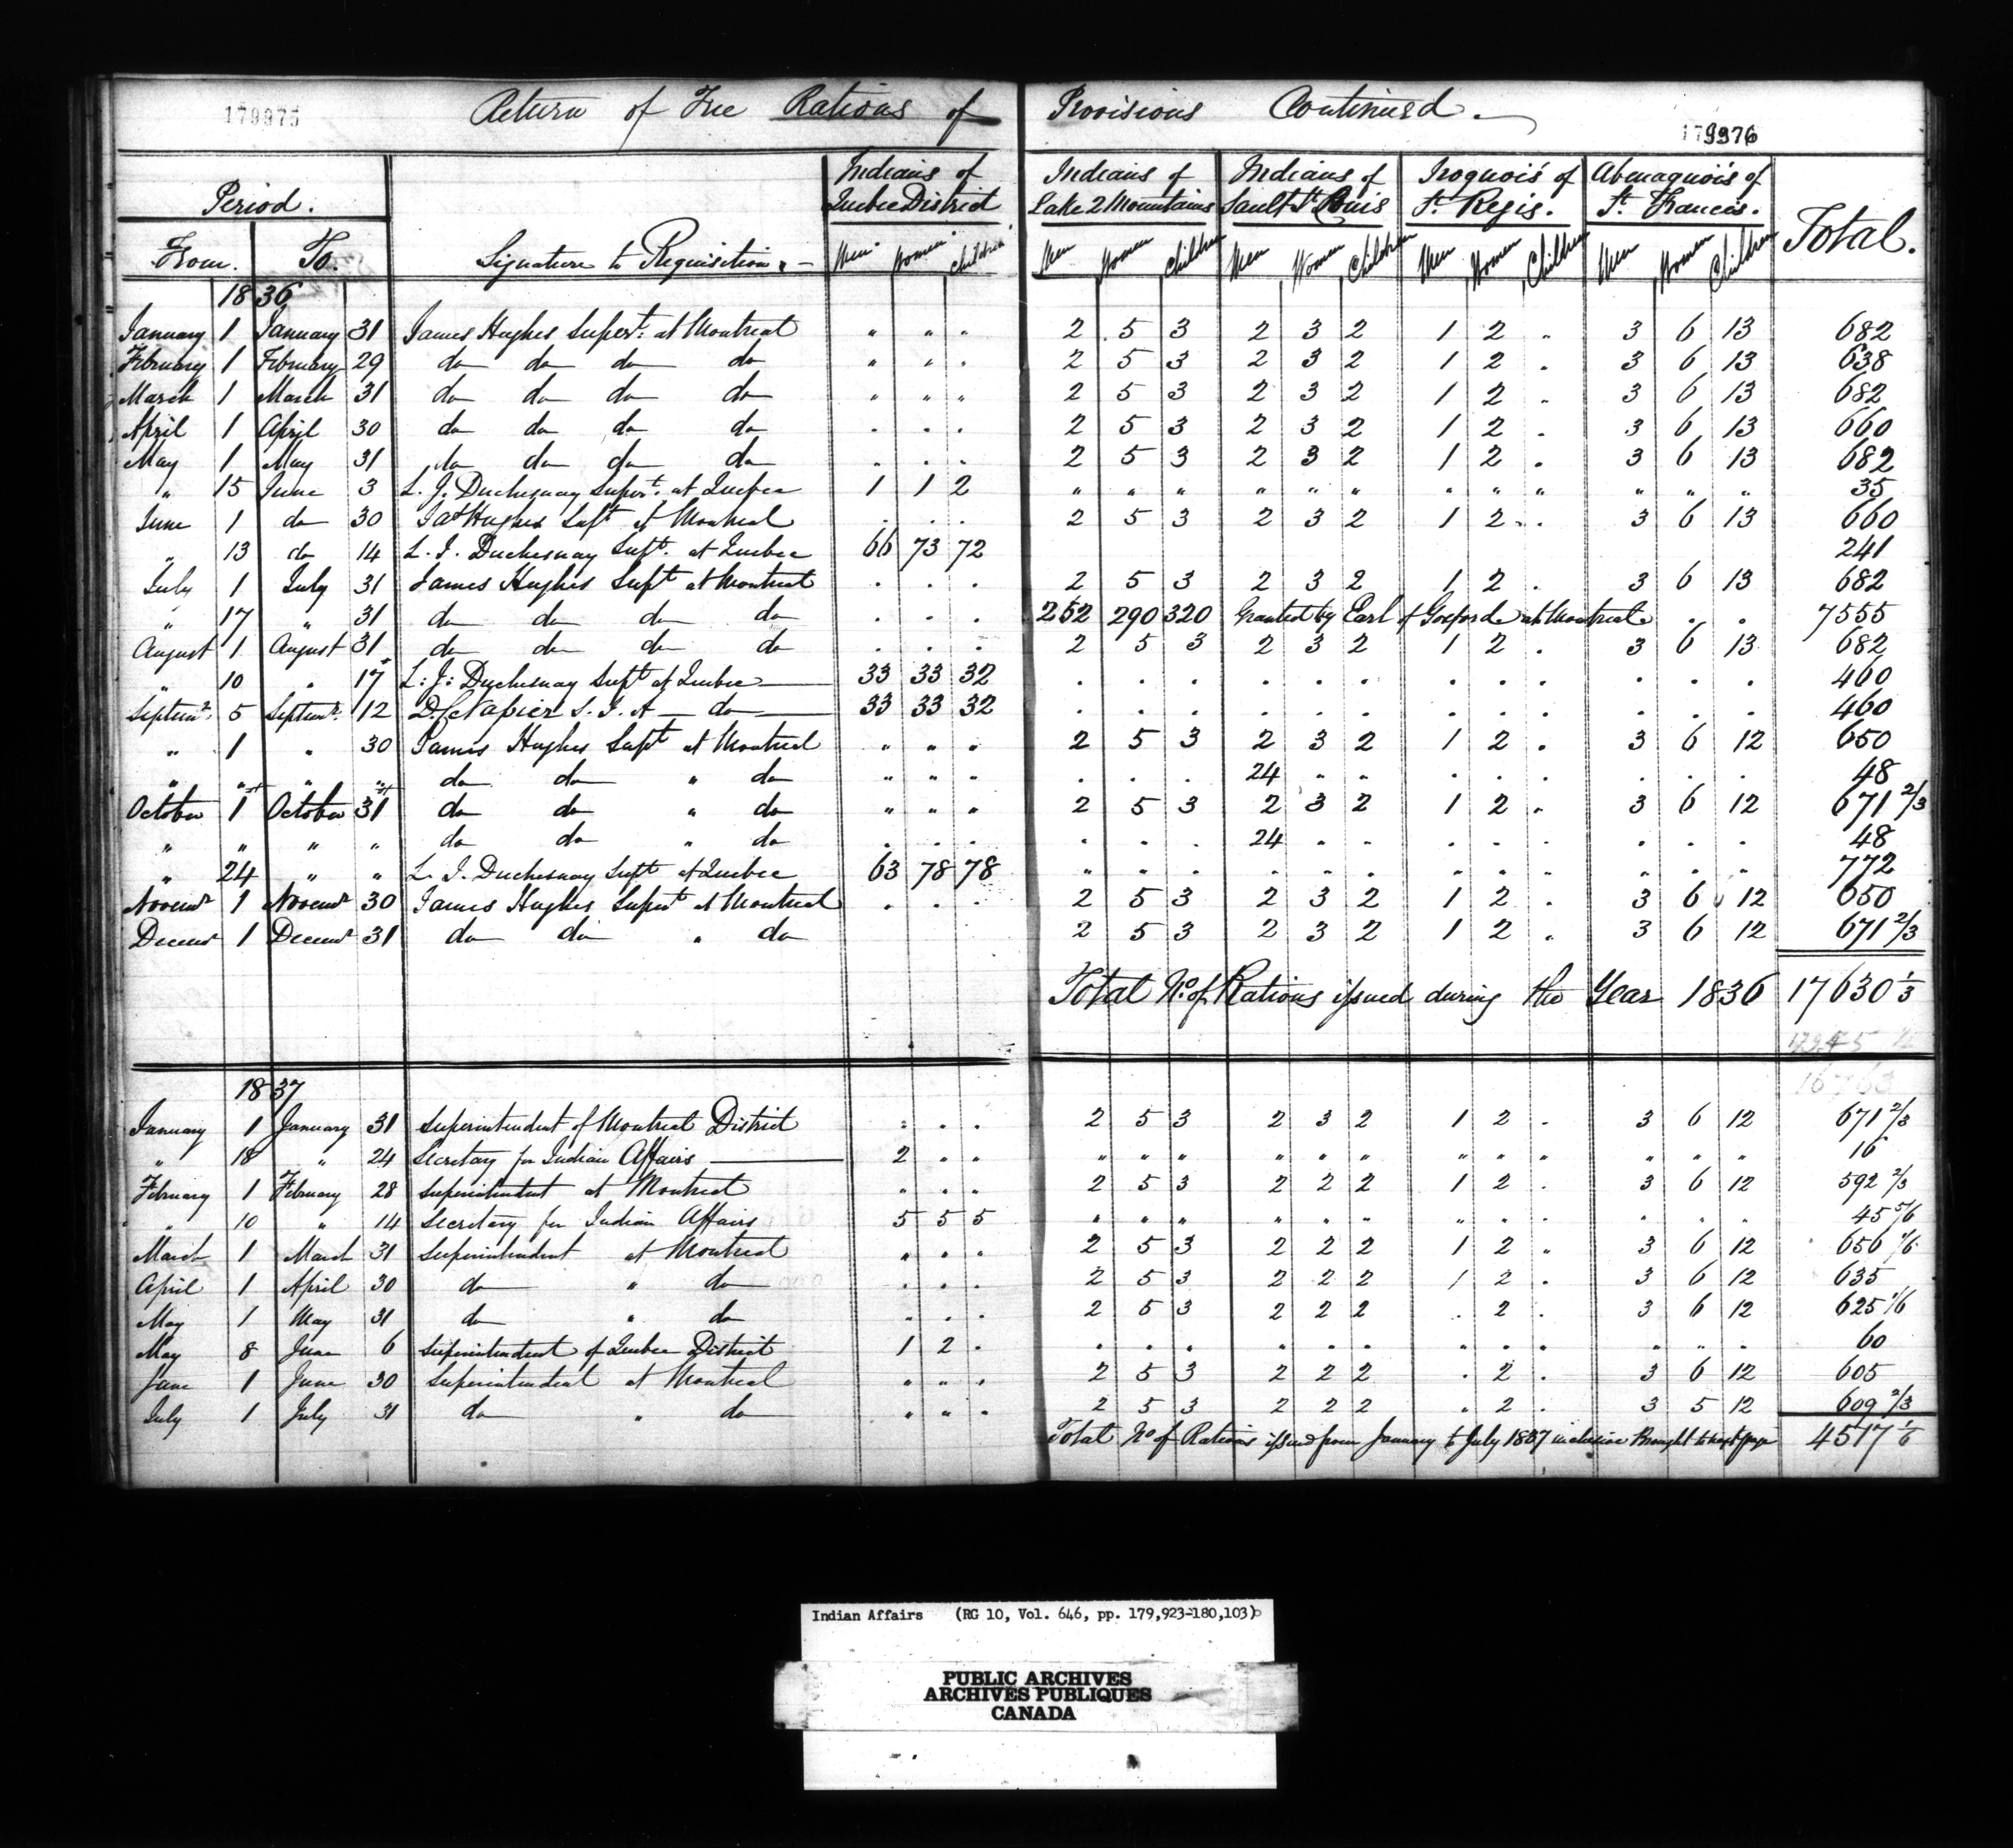 179975
Return of Free Rations of Provisions Continued.
179976
Period. Indians of Quebec District Indians of Lake 2 Mountains Indians of Sault St Louis Iroquois of St. Regis. Abenaquois of St. Francis. Total.
From. To. Signature to Requisition. Men Women Children Men Women Children Men Women Children Men Women Children Men Women Children
1836
January 1 January 31 James Hughes Supert: at Montreal " " " 2 5 3 2 3 2 1 2 " 3 6 13 682
February 1 February 29 do do do do " " . 2 5 3 2 3 2 1 2 . 3 6 13 638
March 1 March 31 do do do do " " " 2 5 3 2 3 2 1 2 " 3 6 13 682
April 1 April 30 do do do do . . . 2 5 3 2 3 2 1 2 . 3 6 13 660
May 1 May 31 do do do do . . . 2 5 3 2 3 2 1 2 . 3 6 13 682
" 15 June 3 L. J. Duchesnay Supert. at Quebec 1 1 2 " " " " " " " " " " " " 35
June 1 do 30 Jas Hughes Supt at Montreal . . . 2 5 3 2 3 2 1 2 . 3 6 13 660
" 13 do 14 L. J. Duchesnay Supt. at Quebec 66 73 72 241
July 1 July 31 James Hughes Supt at Montreal . . . 2 5 3 2 3 2 1 2 . 3 6 13 682
" 17 " 31 do do do do . . . 252 290 320 Granted by Earl of Gosford at Montreal . . 7555
August 1 August 31 do do do do . . . 2 5 3 2 3 2 1 2 . 3 6 13 682
" 10 " 17 L: J: Duchesnay Supt at Quebec 33 33 32 . . . . . . . . . . . . 460
Septemr. 5 Septemr. 12 D. C. Napier S. I. A do 33 33 32 . . . . . . . . . . . . 460
" 1 " 30 James Hughes Supt at Montreal " " " 2 5 3 2 3 2 1 2 . 3 6 12 650
" " " " do do " do " " " . . . 24 " " . . . . . . 48
October 1st October 31st do do " do " " " 2 5 3 2 3 2 1 2 . 3 6 12 671 2/3
" " " " do do " do . . . . . . 24 . . . . . . . . 48
" 24 " " L. J. Duchesnay Supt at Quebec 63 78 78 " . . . . . . . . . . . 772
Novemr 1 Novemr 30 James Hughes Supert at Montreal . . . 2 5 3 2 3 2 1 2 . 3 6 12 650
Decemr 1 Decemr 31 do do " do 2 5 3 2 3 2 1 2 . 3 6 12 671 2/3
Total No. of Rations issued during the Year 1836 17630 1/3
1837
January 1 January 31 Superintendent of Montreal District . . . 2 5 3 2 3 2 1 2 . 3 6 12 671 2/3
" 18 " 24 Secretary for Indian Affairs 2 . . " " " " " " " " " " " " 16
February 1 February 28 Superintendent at Montreal " " " 2 5 3 2 2 2 1 2 . 3 6 12 592 2/3
" 10 " 14 Secretary for Indian Affairs 5 5 5 " " " " " " " . . . . . 45 5/6
March 1 March 31 Superintendent at Montreal " . . 2 5 3 2 2 2 1 2 " 3 6 12 656 1/6
April 1 April 30 do " do . . . 2 5 3 2 2 2 1 2 . 3 6 12 635
May 1 May 31 do " do . . . 2 5 3 2 2 2 . 2 . 3 6 12 625 1/6
May 8 June 6 Superintendent of Quebec District 1 2 . . . . . . . . . . . . . 60
June 1 June 30 Superintendent at Montreal " " " 2 5 3 2 2 2 . 2 . 3 6 12 605
July 1 July 31 do " do " " " 2 5 3 2 2 2 " 2 . 3 5 12 609 2/3
Total No of Rations issued from January to July 1837 inclusive Brought to next page 4517 1/6
Indian Affairs (RG 10, Vol. 646, pp. 179,923-180,103)
PUBLIC ARCHIVES
ARCHIVES PUBLIQUES
CANADA